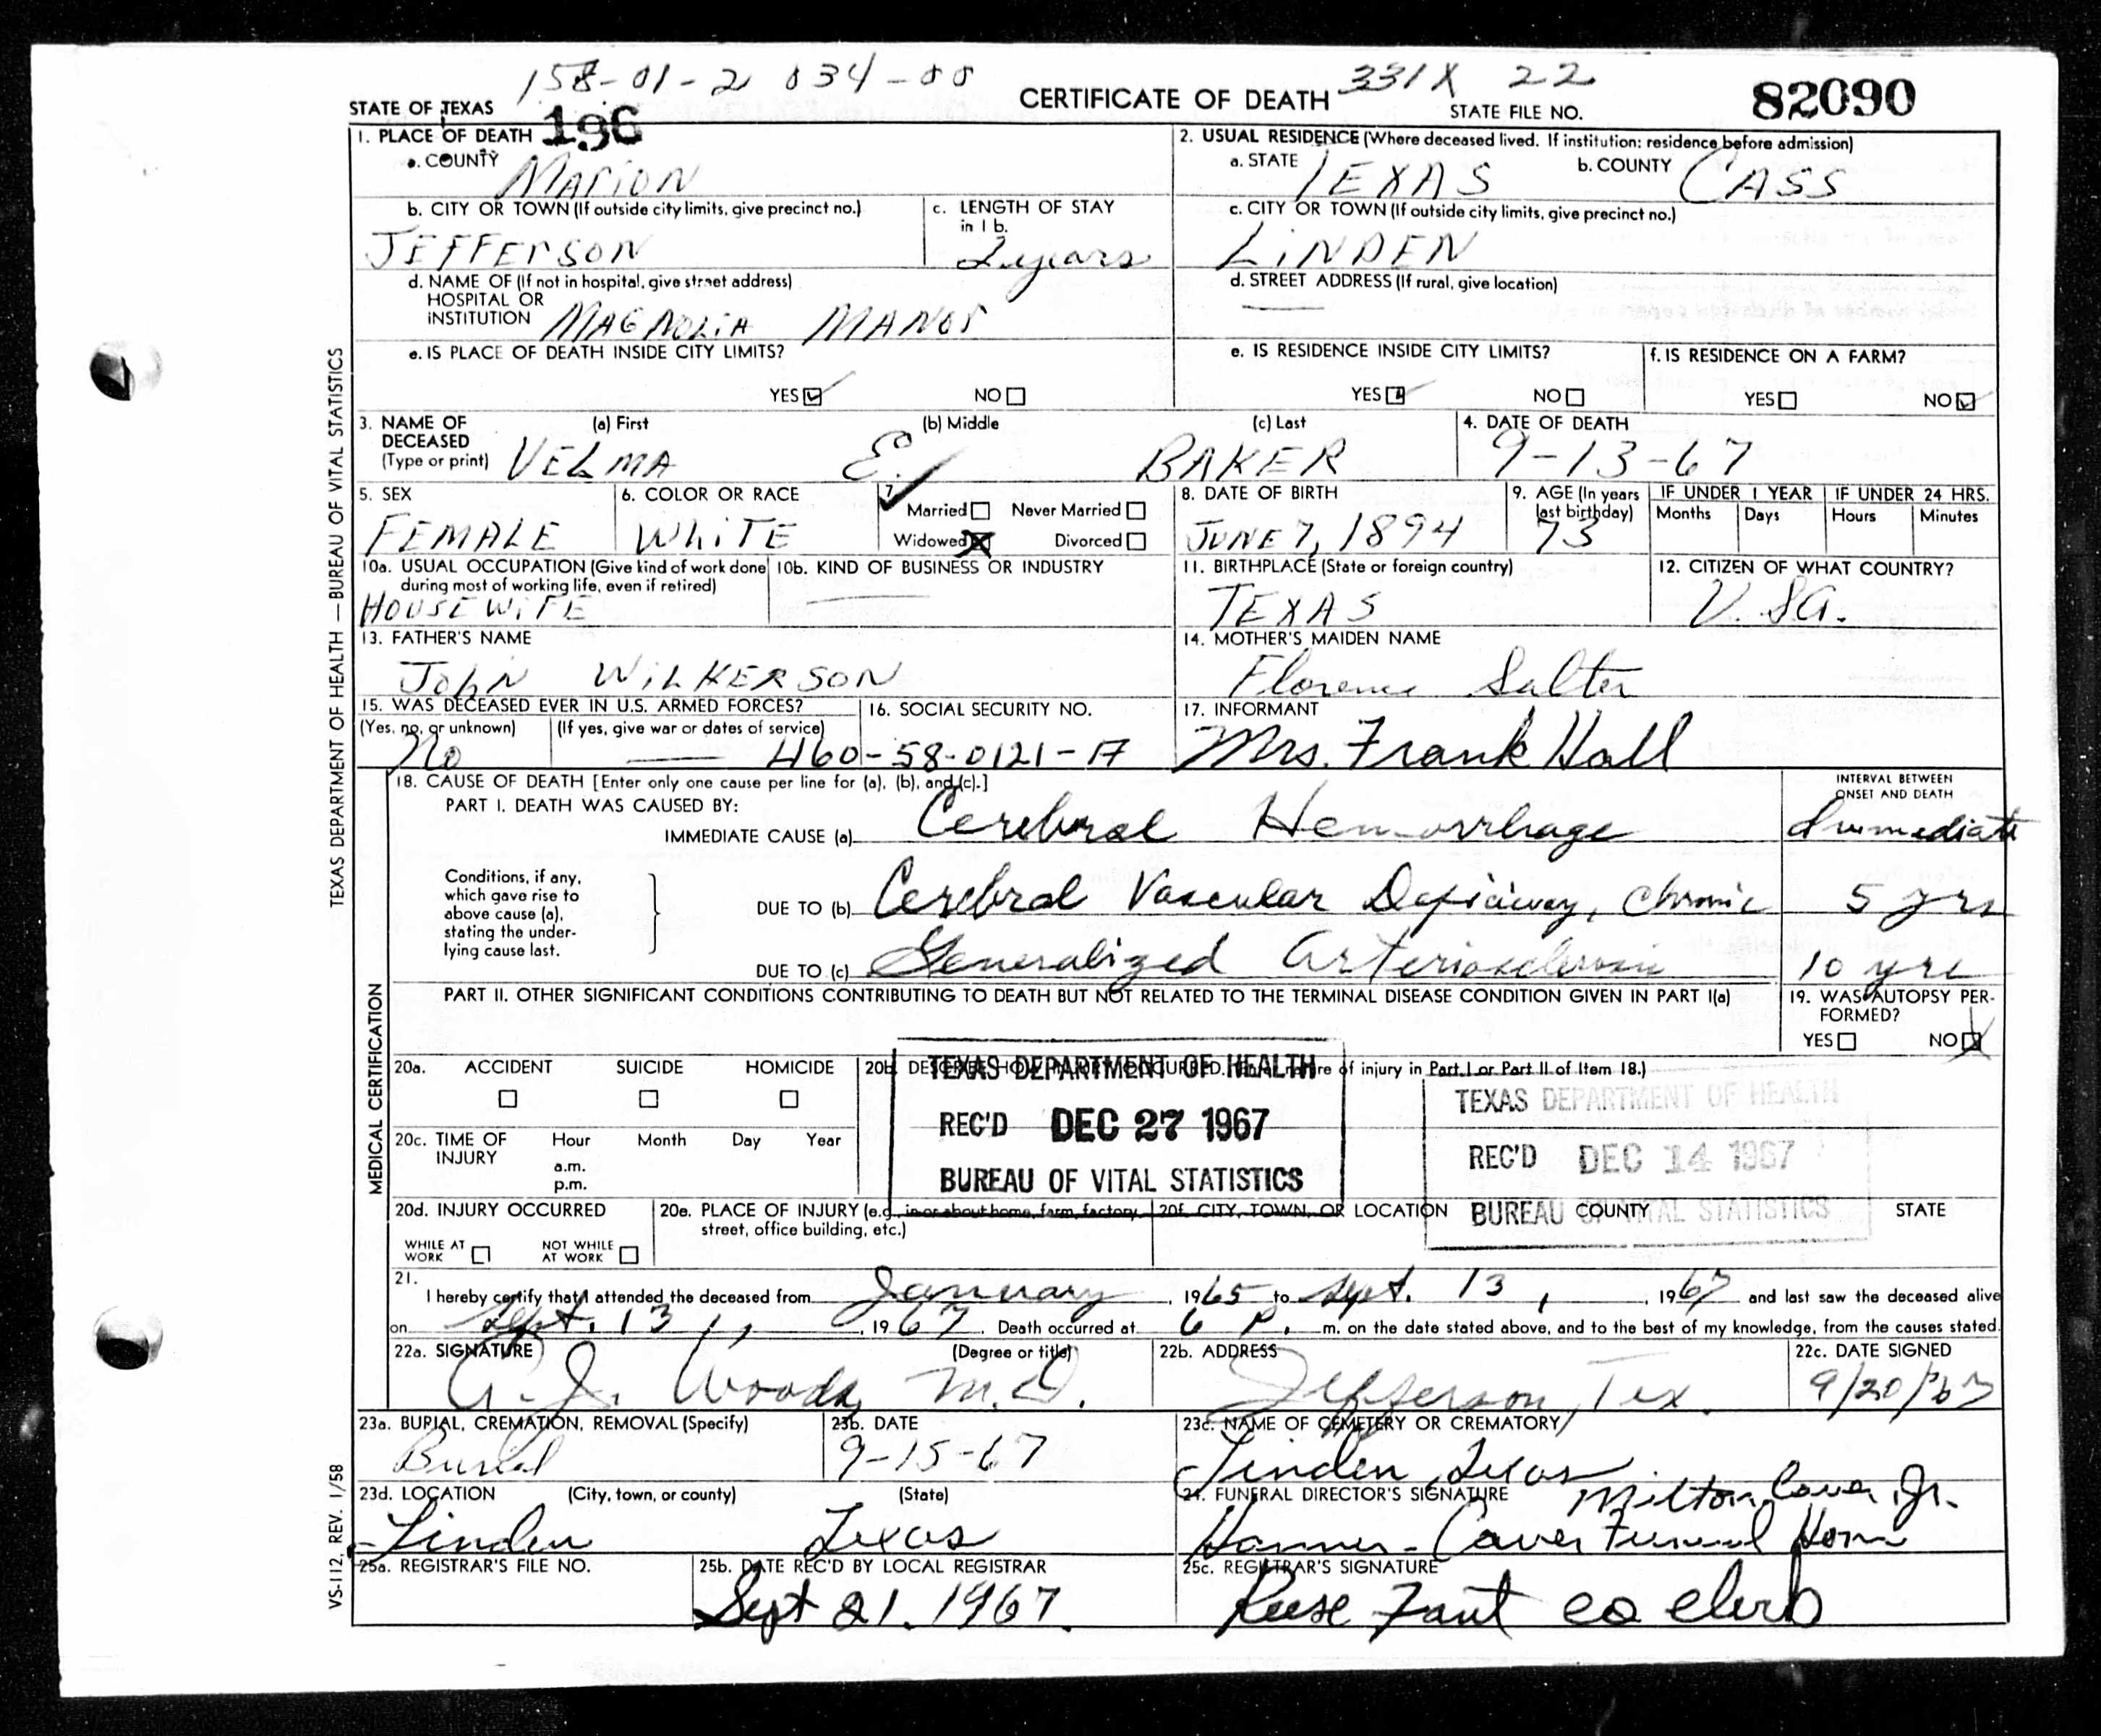 158-01-2 034-00 331X 22
STATE OF TEXAS CERTIFICATE OF DEATH STATE FILE NO. 82090
196
1. PLACE OF DEATH
a. COUNTY MARION
2. USUAL RESIDENCE (Where deceased lived. If institution: residence before admission)
a. STATE TEXAS b. COUNTY CASS
b. CITY OR TOWN (If outside city limits, give precinct no.)
JEFFERSON
c. LENGTH OF STAY in 1 b.
2 years
c. CITY OR TOWN (If outside city limits, give precinct no.)
LINDEN
d. NAME OF (If not in hospital, give street address)
HOSPITAL OR
INSTITUTION MAGNOLIA MANOR
d. STREET ADDRESS (If rural, give location)
—
e. IS PLACE OF DEATH INSIDE CITY LIMITS?
YES NO
e. IS RESIDENCE INSIDE CITY LIMITS?
YES NO
f. IS RESIDENCE ON A FARM?
YES NO
3. NAME OF DECEASED (Type or print)
(a) First (b) Middle (c) Last
VELMA E. BAKER
4. DATE OF DEATH
9-13-67
5. SEX
FEMALE
6. COLOR OR RACE
WHITE
7.
Married Never Married
Widowed Divorced
8. DATE OF BIRTH
JUNE 7, 1894
9. AGE (In years last birthday)
73
IF UNDER 1 YEAR IF UNDER 24 HRS.
Months Days Hours Minutes
10a. USUAL OCCUPATION (Give kind of work done during most of working life, even if retired)
HOUSEWIFE
10b. KIND OF BUSINESS OR INDUSTRY
—
11. BIRTHPLACE (State or foreign country)
TEXAS
12. CITIZEN OF WHAT COUNTRY?
U.SA.
13. FATHER'S NAME
JOHN WILKERSON
14. MOTHER'S MAIDEN NAME
Florence Salter
15. WAS DECEASED EVER IN U.S. ARMED FORCES?
(Yes, no, or unknown) (If yes, give war or dates of service)
No —
16. SOCIAL SECURITY NO.
460-58-0121-A
17. INFORMANT
Mrs. Frank Hall
18. CAUSE OF DEATH [Enter only one cause per line for (a), (b), and (c).]
INTERVAL BETWEEN ONSET AND DEATH
PART I. DEATH WAS CAUSED BY:
IMMEDIATE CAUSE (a) Cerebral Hemorrhage Immediate
Conditions, if any, which gave rise to above cause (a), stating the underlying cause last.
DUE TO (b) Cerebral Vascular Deficiency, Chronic 5 yrs
DUE TO (c) Generalized Arteriosclerosis 10 yrs
PART II. OTHER SIGNIFICANT CONDITIONS CONTRIBUTING TO DEATH BUT NOT RELATED TO THE TERMINAL DISEASE CONDITION GIVEN IN PART I(a)
19. WAS AUTOPSY PERFORMED?
YES NO
20a. ACCIDENT SUICIDE HOMICIDE
20b. DESCRIBE HOW INJURY OCCURRED. of injury in Part I or Part II of Item 18.)
TEXAS DEPARTMENT OF HEALTH
REC'D DEC 27 1967
BUREAU OF VITAL STATISTICS
TEXAS DEPARTMENT OF HEALTH
REC'D DEC 14 1967
BUREAU OF VITAL STATISTICS
20c. TIME OF INJURY Hour Month Day Year
a.m.
p.m.
20d. INJURY OCCURRED
WHILE AT WORK NOT WHILE AT WORK
20e. PLACE OF INJURY (e.g., in or about home, farm, factory, street, office building, etc.)
20f. CITY, TOWN, OR LOCATION COUNTY STATE
21.
I hereby certify that I attended the deceased from January, 1965 to Sept. 13, 1967 and last saw the deceased alive
on Sept. 13, 1967. Death occurred at 6 P. m. on the date stated above, and to the best of my knowledge, from the causes stated.
22a. SIGNATURE (Degree or title)
A. J. Woods, M.D.
22b. ADDRESS
Jefferson, Tex.
22c. DATE SIGNED
9/20/67
23a. BURIAL, CREMATION, REMOVAL (Specify)
Burial
23b. DATE
9-15-67
23c. NAME OF CEMETERY OR CREMATORY
Linden, Texas
23d. LOCATION (City, town, or county) (State)
Linden Texas
24. FUNERAL DIRECTOR'S SIGNATURE
Milton Caver, Jr.
Hanner-Caver Funeral Home
25a. REGISTRAR'S FILE NO.
25b. DATE REC'D BY LOCAL REGISTRAR
Sept 21. 1967
25c. REGISTRAR'S SIGNATURE
Reese Fant co clerk
TEXAS DEPARTMENT OF HEALTH — BUREAU OF VITAL STATISTICS
MEDICAL CERTIFICATION
VS-112, REV. 1/58